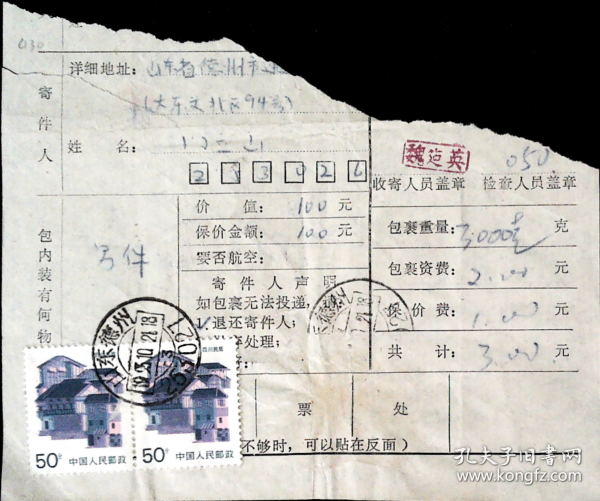 030
详细地址：山东省德州市
（大东文北区94号）
寄件人
姓名：
魏延英
050
2 5 3 0 2 6
收寄人员盖章 检查人员盖章
价值：100元
保价金额：100元
要否航空：
包裹重量：3,000克
包裹资费：2.00元
保价费：1.00元
共计：3.00元
包内装有何物
写件
寄件人声明
如包裹无法投递，
√退还寄件人；
处理；
山东德州
四川民居
50分 中国人民邮政
50分 中国人民邮政
票处
不够时，可以贴在反面）
孔夫子旧书网
www.kongfz.com